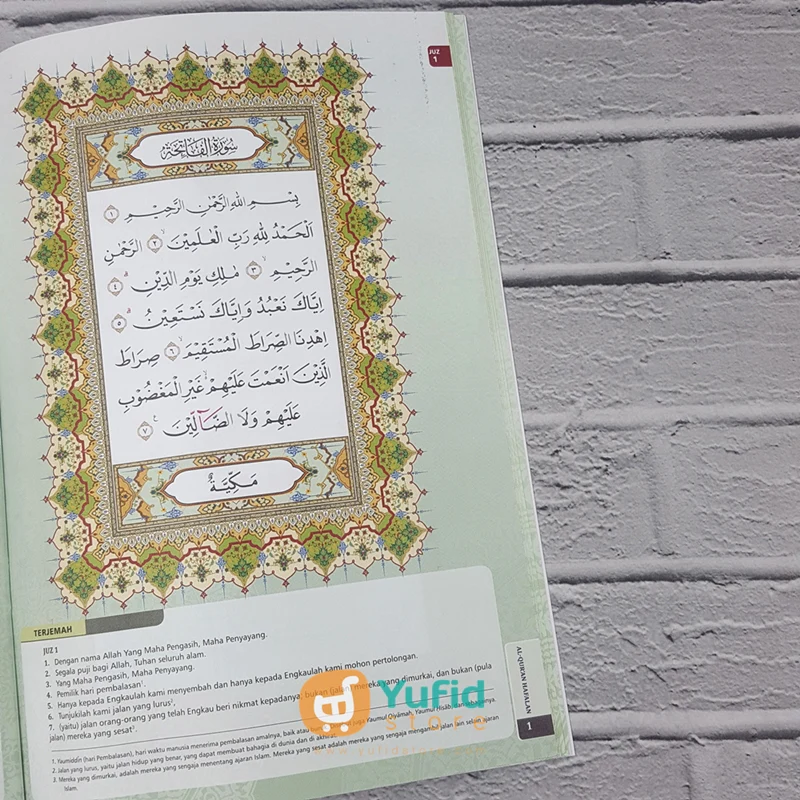 JUZ
1
سُورَةُ الْفَاتِحَةِ
بِسْمِ اللّٰهِ الرَّحْمٰنِ الرَّحِيْمِ ۝١
اَلْحَمْدُ لِلّٰهِ رَبِّ الْعٰلَمِيْنَۙ ۝٢ الرَّحْمٰنِ
الرَّحِيْمِۙ ۝٣ مٰلِكِ يَوْمِ الدِّيْنِۗ ۝٤
اِيَّاكَ نَعْبُدُ وَاِيَّاكَ نَسْتَعِيْنُۗ ۝٥
اِهْدِنَا الصِّرَاطَ الْمُسْتَقِيْمَۙ ۝٦ صِرَاطَ
الَّذِيْنَ اَنْعَمْتَ عَلَيْهِمْ ەۙ غَيْرِ الْمَغْضُوْبِ
عَلَيْهِمْ وَلَا الضَّاۤلِّيْنَ ۝٧
مَكِّيَّةٌ
TERJEMAH
JUZ 1
1. Dengan nama Allah Yang Maha Pengasih, Maha Penyayang.
2. Segala puji bagi Allah, Tuhan seluruh alam.
3. Yang Maha Pengasih, Maha Penyayang.
4. Pemilik hari pembalasan¹.
5. Hanya kepada Engkaulah kami menyembah dan hanya kepada Engkaulah kami mohon pertolongan.
6. Tunjukilah kami jalan yang lurus²,
7. (yaitu) jalan orang-orang yang telah Engkau beri nikmat kepadanya; bukan (jalan) mereka yang dimurkai, dan bukan (pula
jalan) mereka yang sesat³.
1. Yaumiddīn (hari Pembalasan), hari waktu manusia menerima pembalasan amalnya, baik atau juga Yaumul Qiyāmah, Yaumul Hisāb, dan sebagainya.
2. Jalan yang lurus, yaitu jalan hidup yang benar, yang dapat membuat bahagia di dunia dan di akhirat.
3. Mereka yang dimurkai, adalah mereka yang sengaja menentang ajaran Islam. Mereka yang sesat adalah mereka yang sengaja mengambil jalan lain selain ajaran
Islam.
AL-QUR'AN HAFALAN
1
Yufid
STORE
www.yufidstore.com